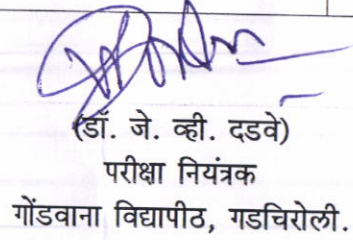 (डॉ. जे. व्ही. दडवे)
परीक्षा नियंत्रक
गोंडवाना विद्यापीठ, गडचिरोली.